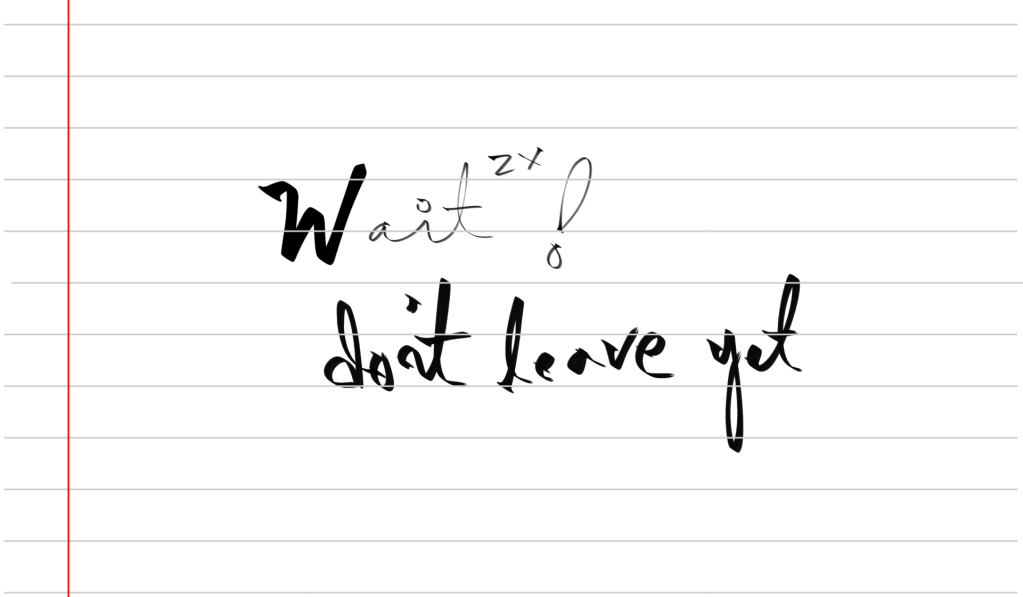 Wait 2x!
don't leave yet